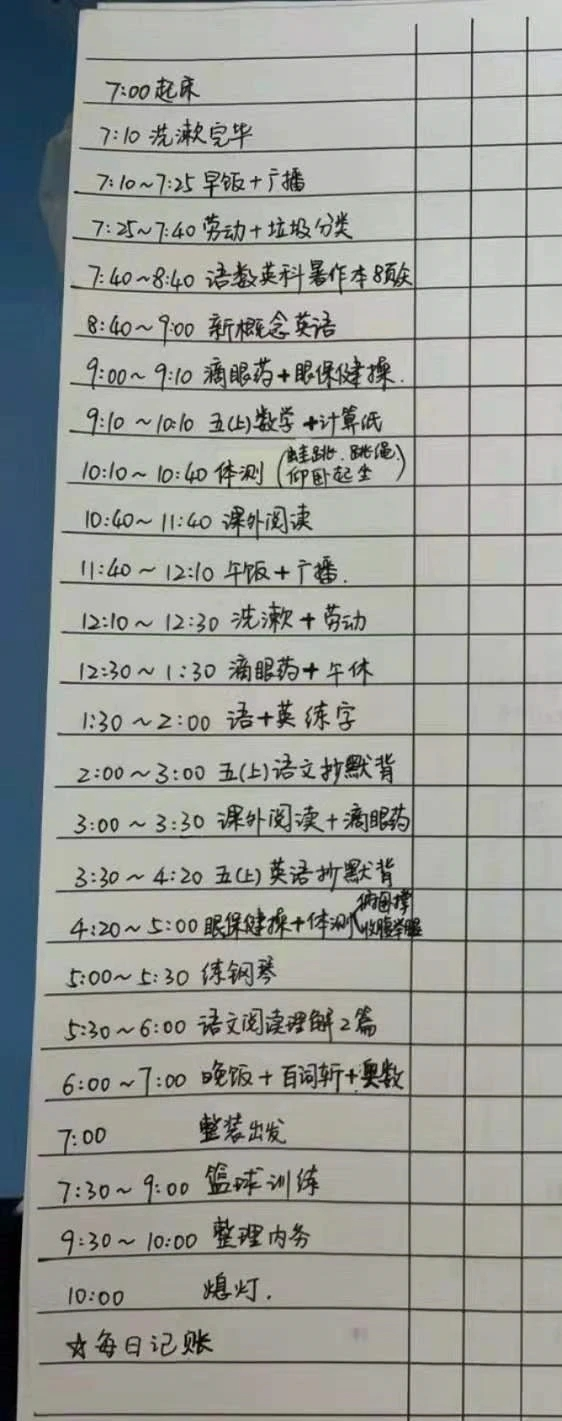 7:00起床
7:10 洗漱完毕
7:10~7:25 早饭+广播
7:25~7:40 劳动+垃圾分类
7:40~8:40 语数英科暑作本8页
8:40~9:00 新概念英语
9:00~9:10 滴眼药+眼保健操.
9:10~10:10 五(上)数学+计算低
10:10~10:40 体测(蛙跳.跳绳、仰卧起坐)
10:40~11:40 课外阅读
11:40~12:10 午饭+广播.
12:10~12:30 洗漱+劳动
12:30~1:30 滴眼药+午休
1:30~2:00 语+英练字
2:00~3:00 五(上)语文抄默背
3:00~3:30 课外阅读+滴眼药
3:30~4:20 五(上)英语抄默背
4:20~5:00 眼保健操+体测(俯卧撑 收腹举腿
5:00~5:30 练钢琴
5:30~6:00 语文阅读理解2篇
6:00~7:00 晚饭+百词斩+奥数
7:00 整装出发
7:30~9:00 篮球训练
9:30~10:00 整理内务
10:00 熄灯.
☆每日记账